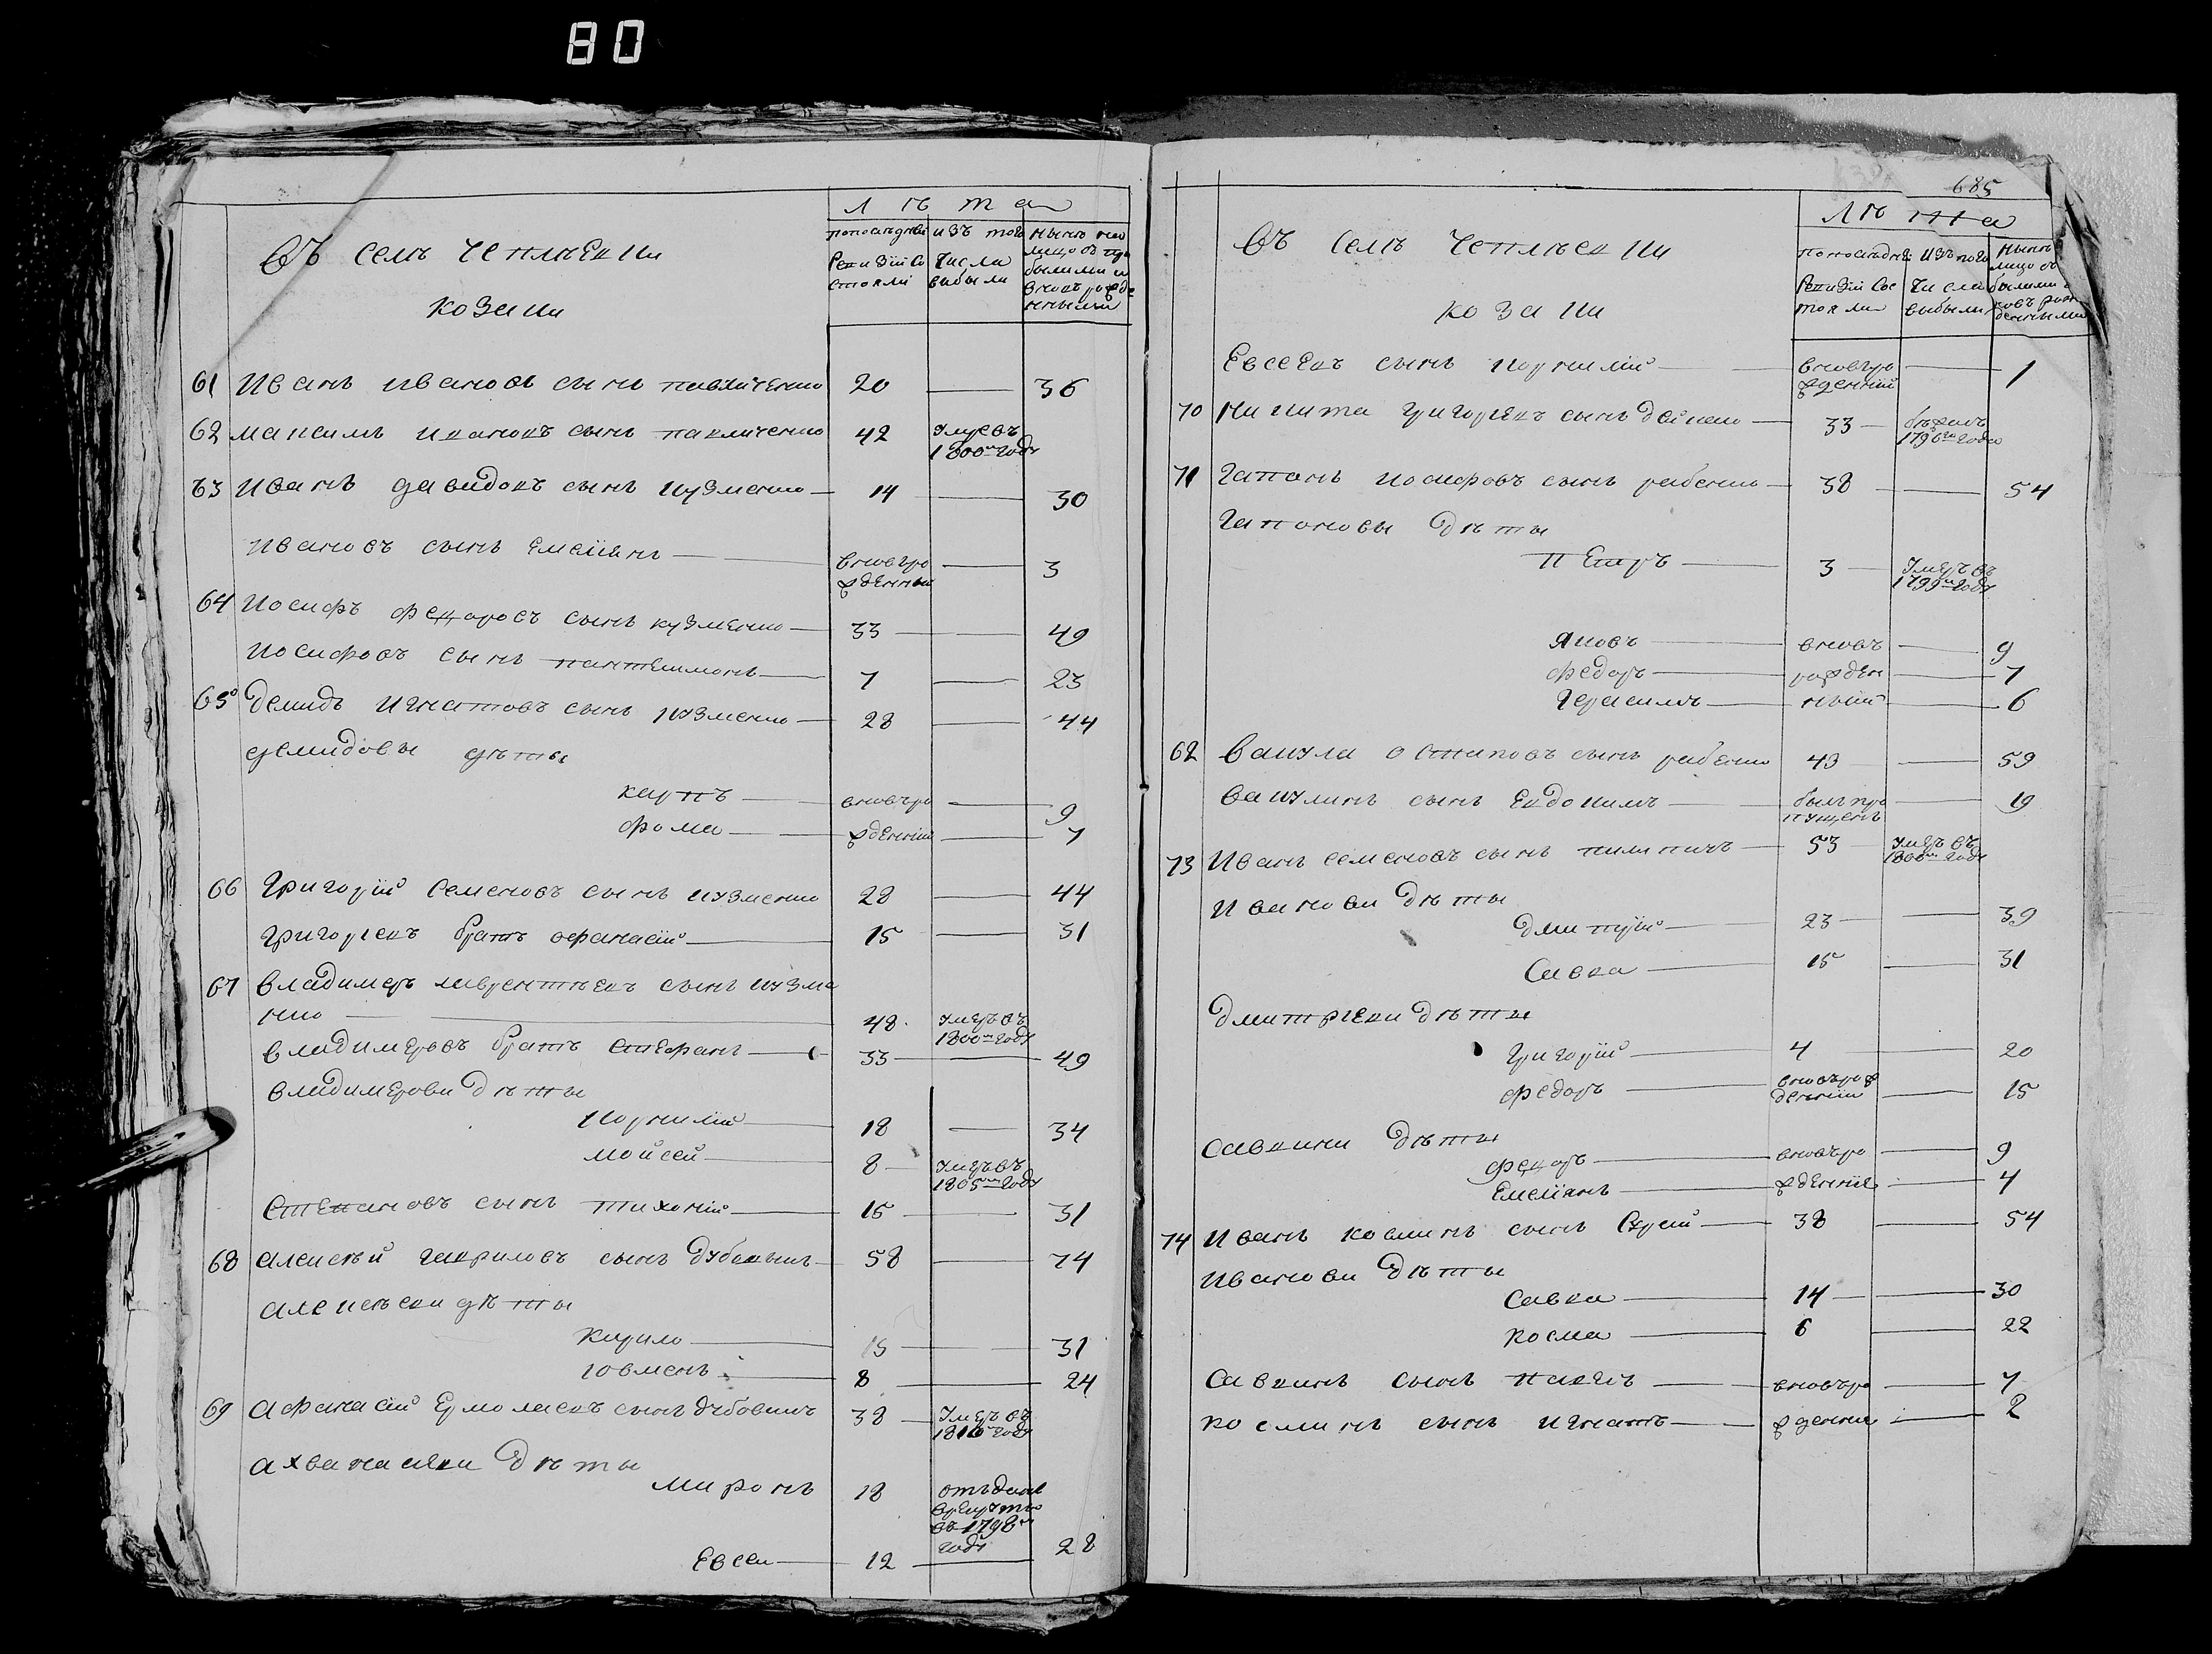 80
Лѣта
Въ селѣ Чеплѣевки
козаки
попоследней ревизіи состояли
изъ того числа выбыли
нынѣ на лицо съ прибылими и вновь рожденными
61 Иванъ Ивановъ сынъ Павличенко 20 — 36
62 Максимъ Ивановъ сынъ Павличенко 42 умре въ 1800м годѣ
63 Иванъ Давидовъ сынъ кузменко — 14 — 30
Ивановъ сынъ Емеліянъ — вновъро жденный — 3
64 Иосифъ Федоровъ сынъ кузменко — 33 — 49
Иосифовъ сынъ пантелимонъ — 7 — 23
65 Демидъ Игнатовъ сынъ кузменко — 28 — 44
Демидовы дѣты
карпъ — вновъро — 9
фома — жденніи — 7
66 Григорій Семеновъ сынъ кузменко 28 — 44
Григориевъ братъ офанасій — 15 — 31
67 Владимеръ лаврентѣевъ сынъ кузме
нко — 48 умеръ въ 1800м годѣ
Владимеровъ братъ Стефанъ — 33 — 49
Владимерови дѣты
Корнилій — 18 — 34
мойсей — 8 — умеръ въ 1805м годѣ
Степановъ сынъ тихоній — 15 — 31
68 Алексѣй гавриловъ сынъ дубовикъ — 58 — 74
Алексѣеви дѣты
Кирило — 15 — 31
Ювменъ — 8 — 24
69 Афанасій Ермолаевъ сынъ дубовикъ 38 — умеръ въ 1810м годѣ
Ахванасиеви дѣты
миронъ 18 отъданъ врекруты въ 1798м годѣ
Евсеи — 12 — 28
685
Лѣта
Въ селѣ Чеплѣевки
козаки
попоследней ревизіи состояли
изъ того числа выбыли
нынѣ лицо съ былими новъ рожденными
Евсеевъ сынъ Корнилій — вновъро жденній — 1
70 Никита Григориевъ сынъ Дейнеко — 33 — бежалъ 1796го года
71 Гапонъ Иосифовъ сынъ рабенко — 38 — 54
Гапоновы дѣты
Петръ — 3 — умеръ въ 1799м годѣ
Яковъ — вновъ — 9
Федоръ — рожден — 7
Герасимъ — нніи — 6
62 Вакула Остаповъ сынъ рабенко 43 — 59
Вакулинъ сынъ Евдокимъ — былъ пропущенъ — 19
73 Иванъ Семеновъ сынъ пилипичъ — 53 — умеръ въ 1800м годѣ
Иванови дѣты
Дмитрій — 23 — 39
Савка — 15 — 31
Дмитриеви дѣты
Григорій — 4 20
Федоръ — вновърож денніи — 15
Савкини дѣты
Федоръ — вновъро — 9
Емеліянъ — жденніе — 4
74 Иванъ косминъ сынъ Сѣрій — 38 — 54
Иванови дѣты
Савка — 14 — 30
косма — 6 — 22
Савкинъ сынъ павелъ — вновъро — 7
косминъ сынъ игнатъ — жденніи — 2